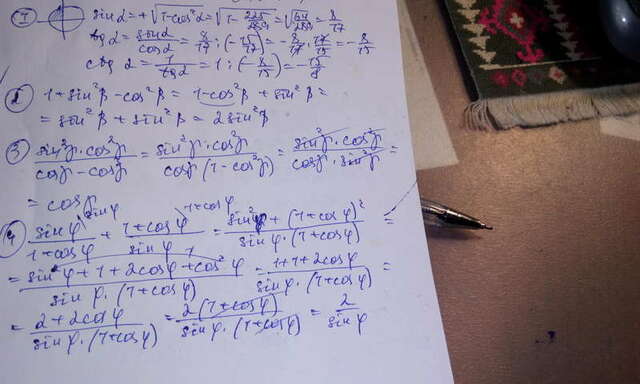 1 sin α = + √1-cos²α = √1- 225/289 = √64/289 = 8/17
tg α = sin α/cos α = 8/17 : (- 15/17) = - 8/17 · 17/15 = - 8/15
ctg α = 1/tg α = 1 : (- 8/15) = - 15/8
2 1 + sin²β - cos²β = 1-cos²β + sin²β =
= sin²β + sin²β = 2sin²β
3 sin²γ · cos²γ/cosγ - cos³γ = sin²γ · cos²γ/cosγ (1 - cos²γ) = sin²γ · cos²γ/cosγ · sin²γ =
= cosγ
4 sin φ/1+cos φ + 1+cos φ/sin φ = sin²φ + (1+cos φ)²/sin φ · (1+cos φ) =
= sin²φ + 1 + 2cosφ + cos²φ/sin φ · (1+cos φ) = 1+1+2cosφ/sin φ · (1+cos φ) =
= 2+2cosφ/sin φ · (1+cos φ) = 2(1+cos φ)/sin φ · (1+cos φ) = 2/sin φ